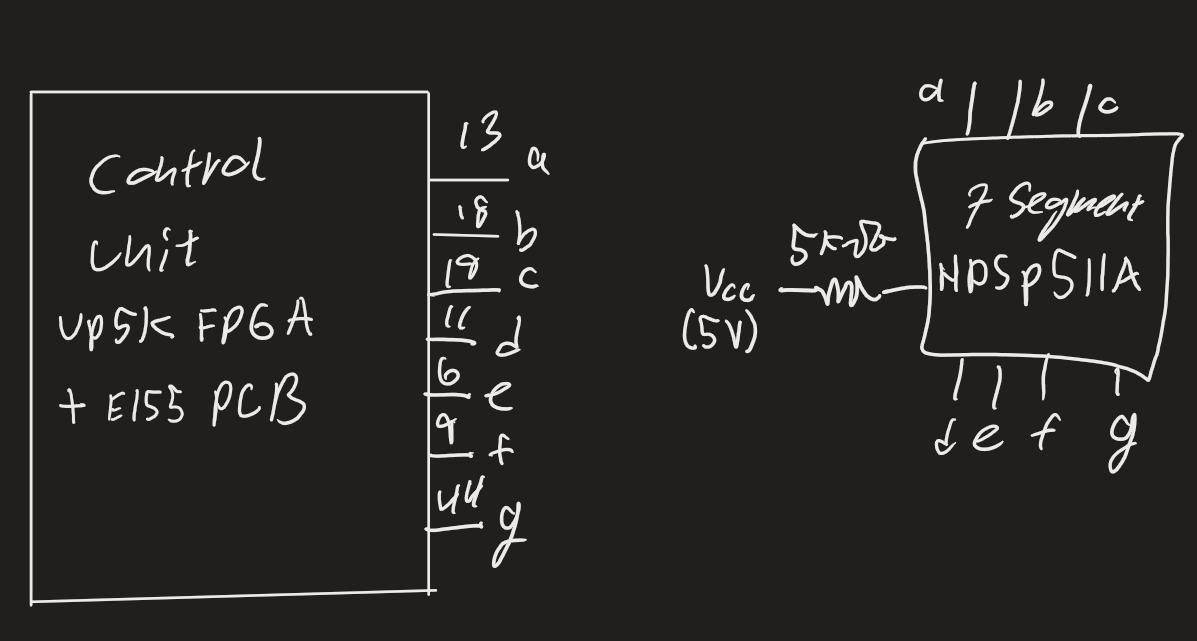 Control
Unit
UP5K FPGA
+ E155 PCB
13
a
18
b
19
c
11
d
6
e
9
f
44
g
Vcc
(5V)
5kΩ
a b c
7 Segment
HDSP511A
d e f g